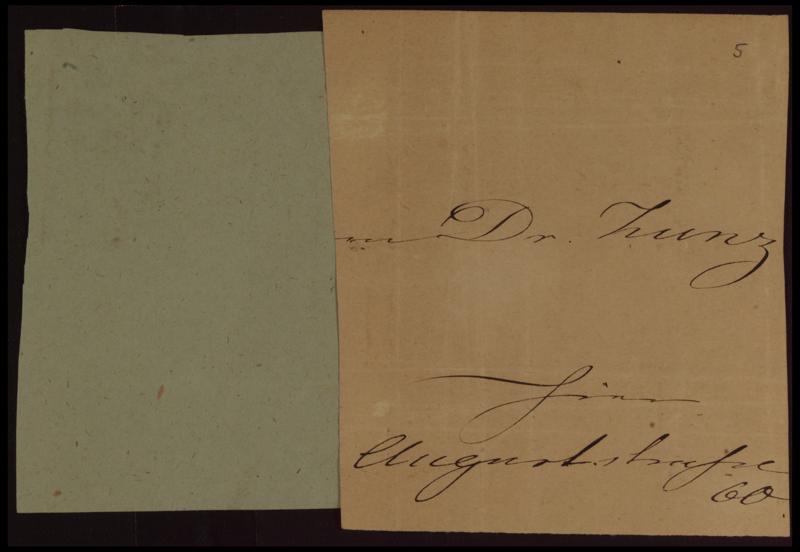 5
n Dr. Zunz
Hier
Auguststraße
60.